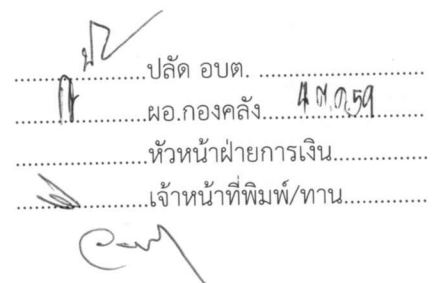 ปลัด อบต.
ผอ.กองคลัง 4 ต.ค. 59
หัวหน้าฝ่ายการเงิน
เจ้าหน้าที่พิมพ์/ทาน